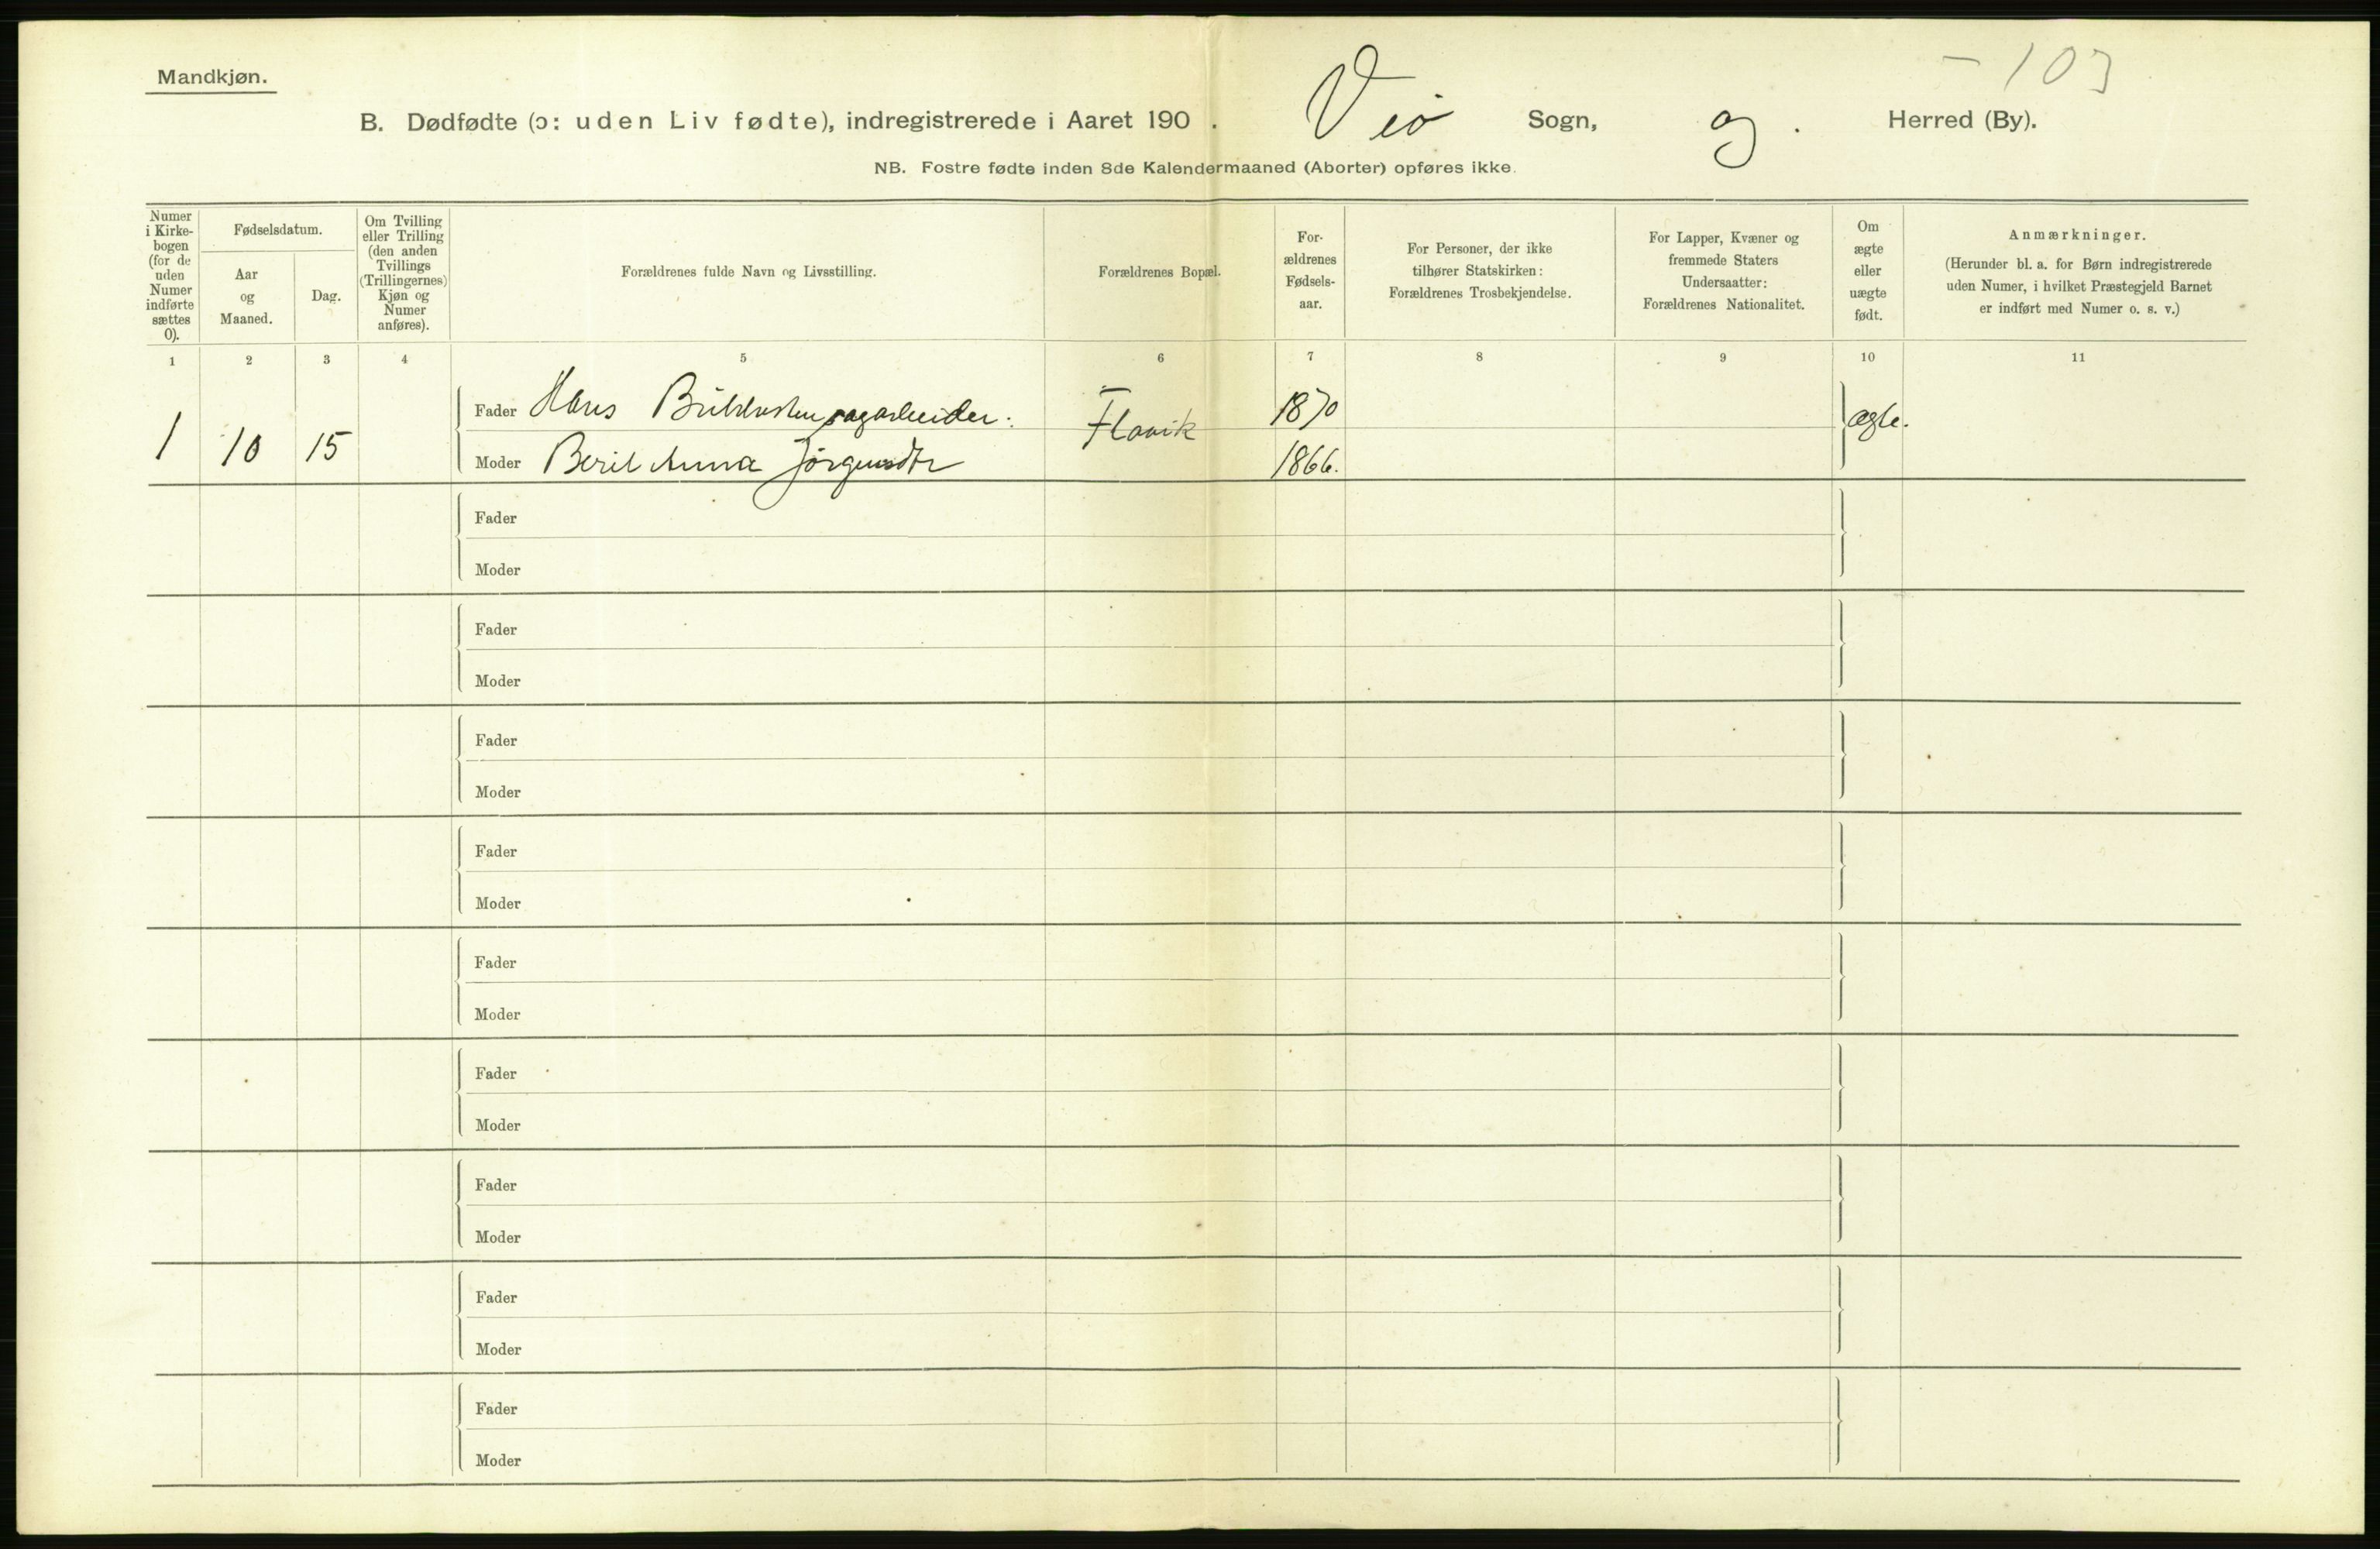 Mandkjøn.
- 103
B. Dødfødte (ɔ: uden Liv fødte), indregistrerede i Aaret 190 . Veø Sogn, og . Herred (By).
NB. Fostre fødte inden 8de Kalendermaaned (Aborter) opføres ikke.
Numer i Kirkebogen (for de uden Numer indførte sættes 0).
Fødselsdatum.
Aar og Maaned.
Dag.
Om Tvilling eller Trilling (den anden Tvillings (Trillingernes) Kjøn og Numer anføres).
Forældrenes fulde Navn og Livsstilling.
Forældrenes Bopæl.
For-ældrenes Fødsels-aar.
For Personer, der ikke tilhører Statskirken: Forældrenes Trosbekjendelse.
For Lapper, Kvæner og fremmede Staters Undersaatter: Forældrenes Nationalitet.
Om ægte eller uægte født.
Anmærkninger.
(Herunder bl. a. for Børn indregistrerede uden Numer, i hvilket Præstegjeld Barnet er indført med Numer o. s. v.)
1 2 3 4 5 6 7 8 9 10 11
Fader Hans sagarbeider. 1870
1 10 15 Flovik ægte.
Moder Berit Anna Jørgensdtr 1866.
Fader
Moder
Fader
Moder
Fader
Moder
Fader
Moder
Fader
Moder
Fader
Moder
Fader
Moder
Fader
Moder
Fader
Moder